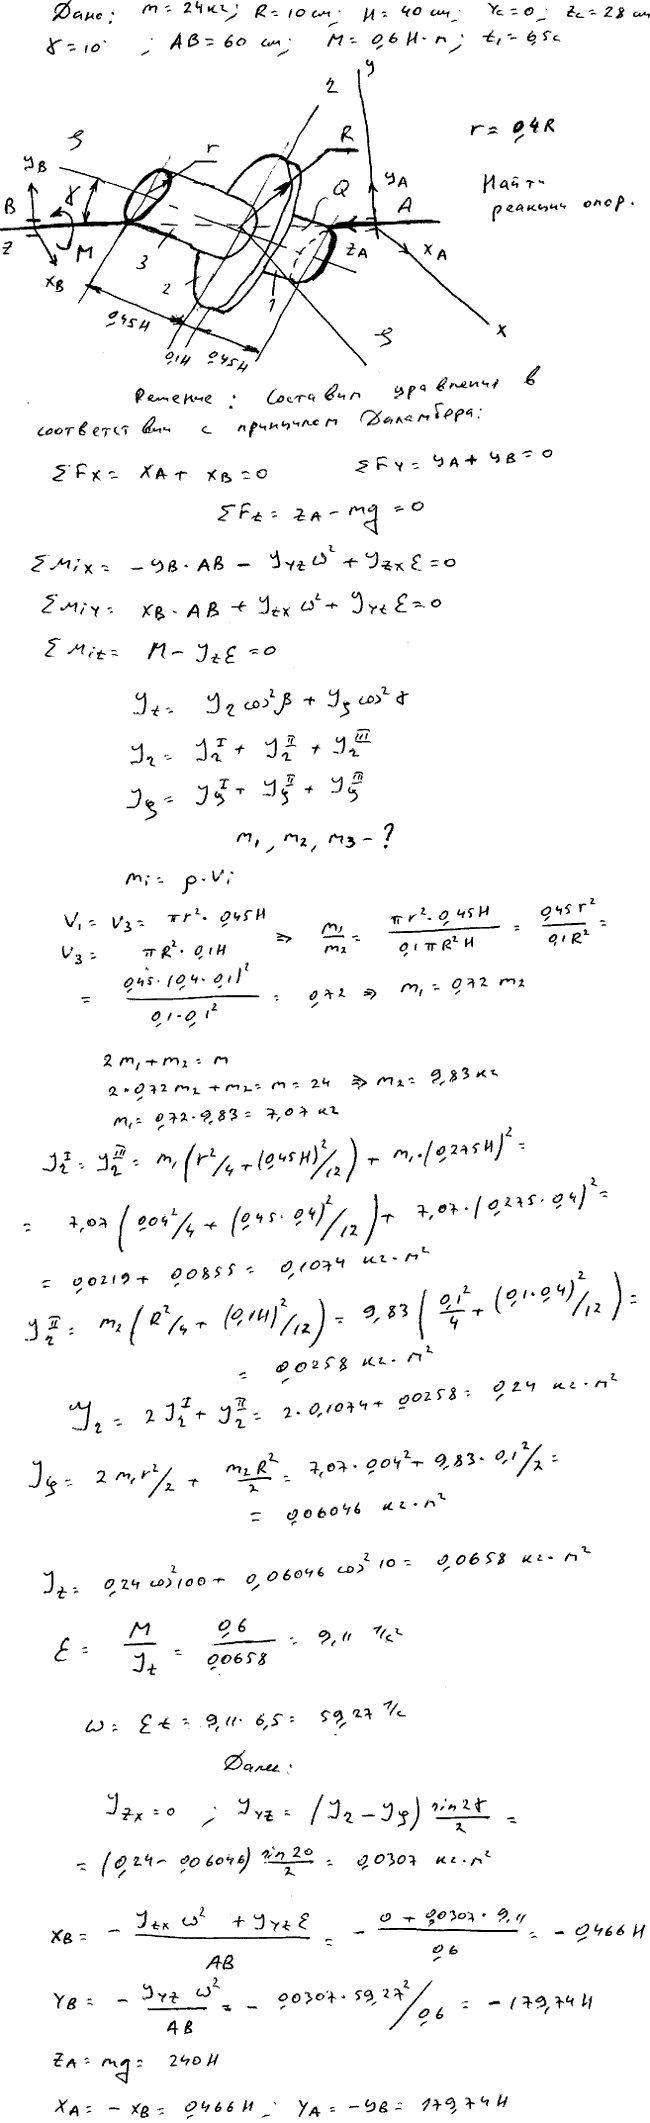 Дано: m = 24 кг; R = 10 см; H = 40 см; Yc = 0; Zc = 28 см
γ = 10°; AB = 60 см; M = 0,6 Н·м; t₁ = 6,5 с
y
2
ζ
r
R
r = 0,4R
yB
γ
Q
yA
Найти
реакции опор.
B
A
z
M
zA
xA
xB
3
2
1
0,45H
0,1H
0,45H
ζ
x
Решение: Составим уравнения в
соответствии с принципом Даламбера:
ΣFx = XA + XB = 0   ΣFy = YA + YB = 0
ΣFz = ZA − mg = 0
ΣMix = −YB·AB − Jyzω² + Jzxε = 0
ΣMiy = XB·AB + Jzxω² + Jyzε = 0
ΣMiz = M − Jzε = 0
Jz = J2 cos²β + Jζ cos²γ
J2 = J2^I + J2^II + J2^III
Jζ = Jζ^I + Jζ^II + Jζ^III
m₁, m₂, m₃ − ?
mi = ρ·Vi
V₁ = V₃ = πr²·0,45H
V₃ = πR²·0,1H ⇒ m₁/m₂ = πr²·0,45H / 0,1πR²H = 0,45r² / 0,1R² =
= 0,45·(0,4·0,1)² / 0,1·0,1² = 0,72 ⇒ m₁ = 0,72 m₂
2m₁ + m₂ = m
2·0,72m₂ + m₂ = m = 24 ⇒ m₂ = 9,83 кг
m₁ = 0,72·9,83 = 7,07 кг
J2^I = J2^III = m₁(r²/4 + (0,45H)²/12) + m₁·(0,275H)² =
= 7,07(0,04²/4 + (0,45·0,4)²/12) + 7,07·(0,275·0,4)² =
= 0,0219 + 0,0855 = 0,1074 кг·м²
J2^II = m₂(R²/4 + (0,1H)²/12) = 9,83(0,1²/4 + (0,1·0,4)²/12) =
= 0,0258 кг·м²
J2 = 2J2^I + J2^II = 2·0,1074 + 0,0258 = 0,24 кг·м²
Jζ = 2m₁r²/2 + m₂R²/2 = 7,07·0,04² + 9,83·0,1²/2 =
= 0,06046 кг·м²
Jz = 0,24 cos²100 + 0,06046 cos²10 = 0,0658 кг·м²
ε = M/Jz = 0,6/0,0658 = 9,11 1/с²
ω = εt = 9,11·6,5 = 59,27 1/с
Далее:
Jzx = 0; Jyz = (J2 − Jζ) sin2γ/2 =
= (0,24 − 0,06046) sin20/2 = 0,0307 кг·м²
XB = − Jzxω² + Jyzε / AB = − 0 + 0,0307·9,11 / 0,6 = −0,466 Н
YB = − Jyzω² / AB = −0,0307·59,27²/0,6 = −179,74 Н
ZA = mg = 240 Н
XA = −XB = 0,466 Н; YA = −YB = 179,74 Н